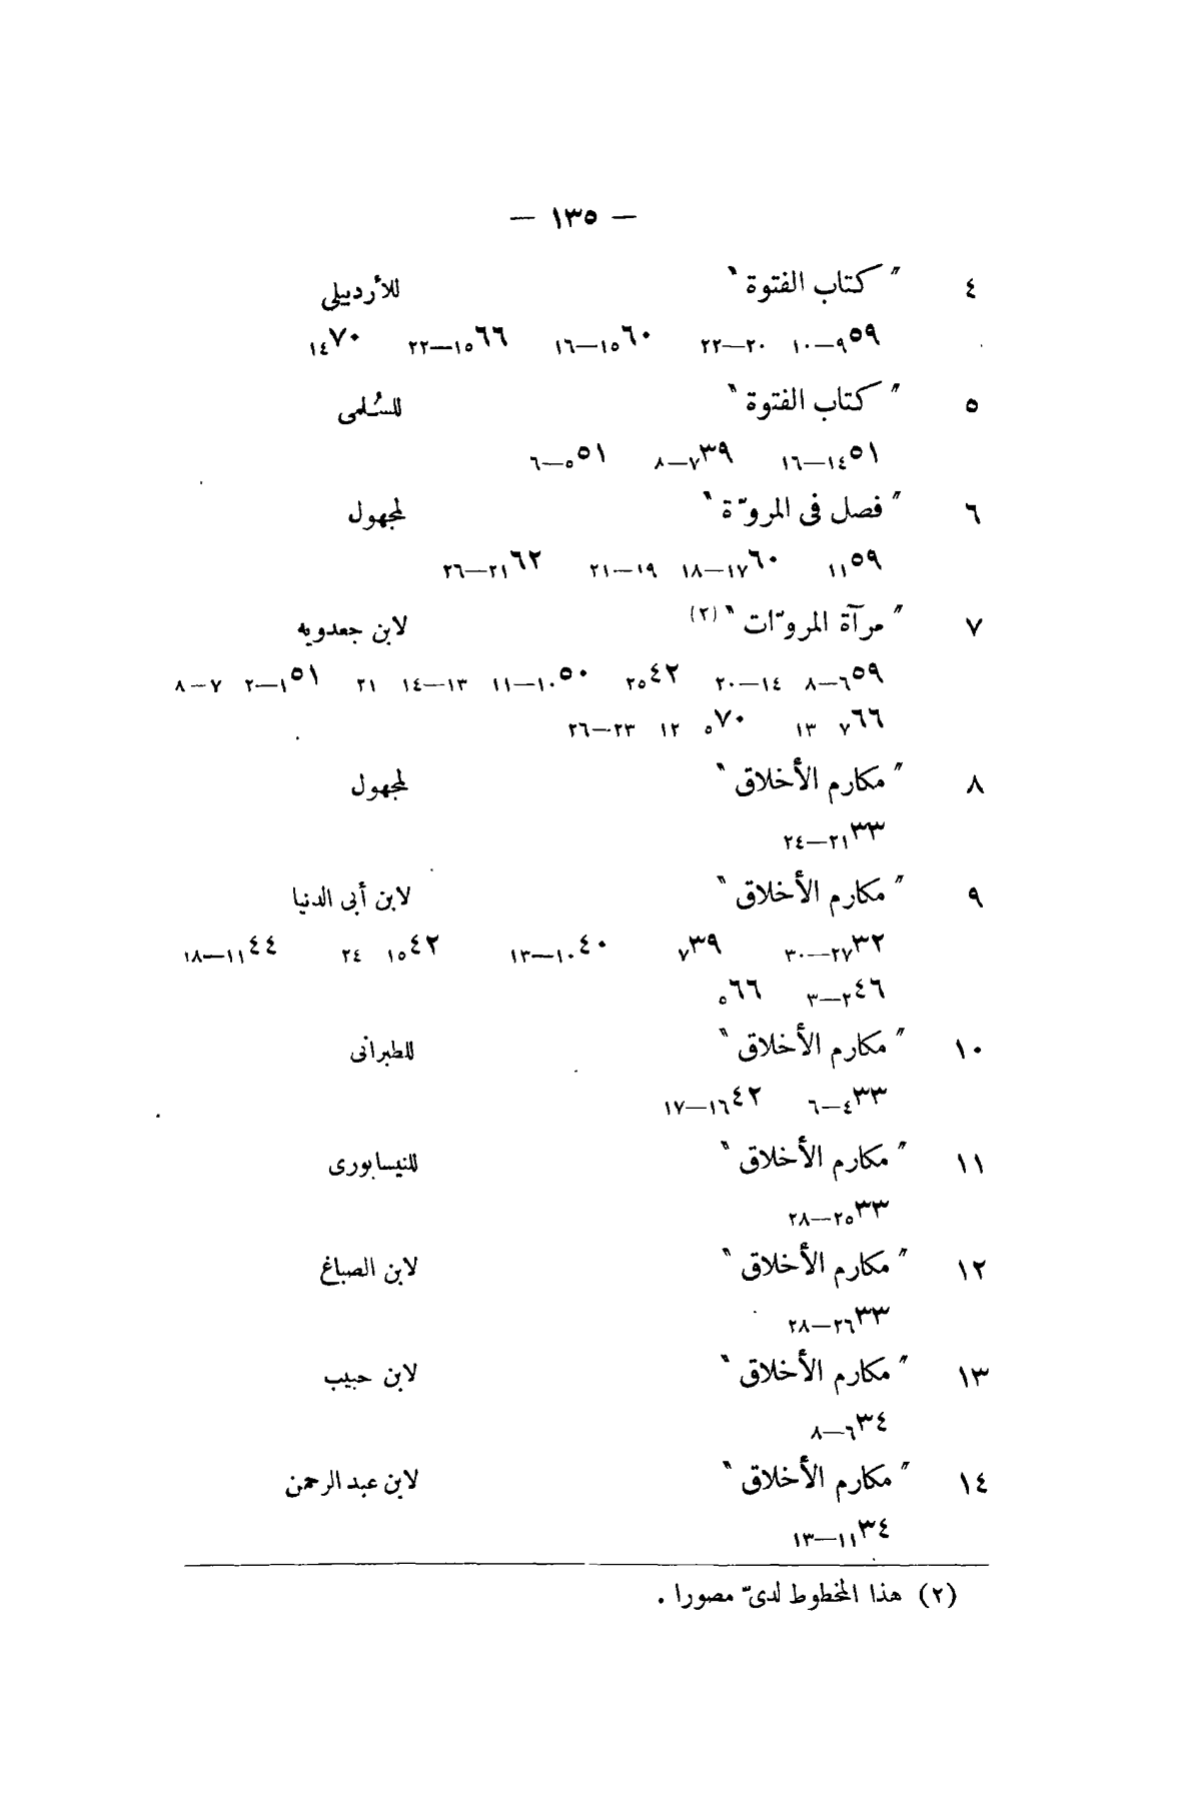 — ١٣٥ —
٤ " كتاب الفتوة " للأردبيلى
٥٩ ٩—١٠ ٢٠—٢٢ ٦٠ ١٥—١٦ ٦٦ ١٥—٢٢ ٧٠ ١٤
٥ " كتاب الفتوة " للسُلمى
٥١ ١٤—١٦ ٣٩ ٧—٨ ٥١ ٥—٦
٦ " فصل فى المروّة " لمجهول
٥٩ ١١ ٦٠ ١٧—١٨ ١٩—٢١ ٦٢ ٢١—٢٦
٧ " مرآة المروّات " (٢) لابن جعدويه
٥٩ ٦—٨ ١٤—٢٠ ٤٢ ٢٥ ٥٠ ١٠—١١ ١٣—١٤ ٢١ ٥١ ١—٢ ٧—٨
٦٦ ٧ ١٣ ٧٠ ٥ ١٢ ٢٣—٢٦
٨ " مكارم الأخلاق " لمجهول
٣٣ ٢١—٢٤
٩ " مكارم الأخلاق " لابن أبى الدنيا
٣٢ ٢٧—٣٠ ٣٩ ٧ ٤٠ ١٠—١٣ ٤٢ ١٥ ٢٤ ٤٤ ١١—١٨
٤٦ ٢—٣ ٦٦ ٥
١٠ " مكارم الأخلاق " للطبرانى
٣٣ ٤—٦ ٤٢ ١٦—١٧
١١ " مكارم الأخلاق " للنيسابورى
٣٣ ٢٥—٢٨
١٢ " مكارم الأخلاق " لابن الصباغ
٣٣ ٢٦—٢٨
١٣ " مكارم الأخلاق " لابن حبيب
٣٤ ٦—٨
١٤ " مكارم الأخلاق " لابن عبد الرحمن
٣٤ ١١—١٣
(٢) هذا المخطوط لدىّ مصورا .